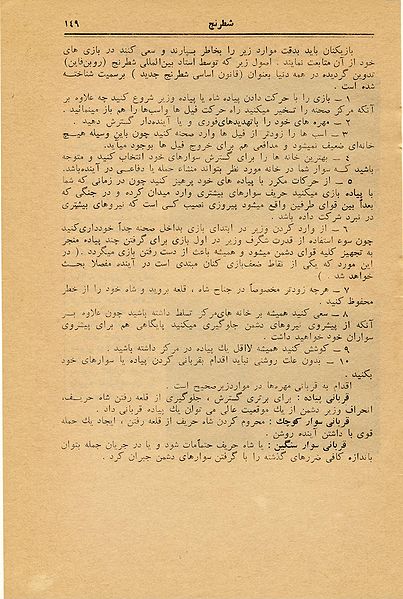 شطرنج
۱۴۹
بازیکنان باید بدقت موارد زیر را بخاطر بسپارند و سعی کنند در بازی های
خود از آن متابعت نمایند . اصول زیر که توسط استاد بین‌المللی شطرنج (روبن‌فاین)
تدوین گردیده در همه دنیا بعنوان (قانون اساسی شطرنج جدید ) برسمیت شناخته
شده است .
۱ – بازی را با حرکت دادن پیاده شاه یا پیاده وزیر شروع کنید چه علاوه بر
آنکه مرکز صحنه را تسخیر میکنید راه حرکت فیل ها واسب‌ها را هم باز مینمائید .
۲ – مهره های خود را باتهدیدهای‌فوری و یا آینده‌دار گسترش دهید .
۳ – اسب ها را زودتر از فیل ها وارد صحنه کنید چون باین وسیله هیچ
خانه‌ای ضعیف نمیشود و مدافعی هم برای خروج فیل ها بوجود میآید.
۴ – بهترین خانه ها را برای گسترش سوارهای خود انتخاب کنید و متوجه
باشید که سوار شما در خانه مورد نظر بتواند منشاء حمله یا دفاعی در آینده‌باشد.
۵ – از حرکات مکرر با پیاده های خود پرهیز کنید چون در زمانی که شما
با پیاده بازی میکنید حریف سوارهای بیشتری وارد میدان کرده و در جنگی که
بعداً بین قوای طرفین واقع میشود پیروزی نصیب کسی است که نیروهای بیشتری
در نبرد شرکت داده باشد .
۶ – از وارد کردن وزیر در ابتدای بازی بداخل صحنه جداً خودداری‌کنید
چون سوء استفاده از قدرت شگرف وزیر در اول بازی برای گرفتن چند پیاده منجر
به تجهیز کلیه قوای دشمن میشود و همیشه باعث از دست رفتن بازی میگردد . ( در
این مورد که یکی از نقاط ضعف‌بازی کنان مبتدی است در آینده مفصلا بحث
خواهد شد . )
۷ – هرچه زودتر مخصوصاً در جناح شاه ، قلعه بروید و شاه خود را از خطر
محفوظ کنید .
۸ – سعی کنید همیشه بر خانه های‌مرکز تسلط داشته باشید چون علاوه بر
آنکه از پیشروی نیروهای دشمن جلوگیری میکنید پایگاهی هم برای پیشروی
سواران خود خواهید داشت .
۹ – کوشش کنید همیشه لااقل یك پیاده در مرکز داشته باشید .
۱۰ – بدون علت روشنی نباید اقدام بقربانی کردن پیاده یا سوارهای خود
بکنید .
اقدام به قربانی مهره‌ها در مواردزیرصحیح است .
قربانی پیاده : برای برتری گسترش ، جلوگیری از قلعه رفتن شاه حریف،
انحراف وزیر دشمن از یك موقعیت عالی می توان یك پیاده قربانی داد .
قربانی سوار کوچك : محروم کردن شاه حریف از قلعه رفتن ، ایجاد یك حمله
قوی با داشتن آینده روشن .
قربانی سوار سنگین : یا شاه حریف حتماًمات شود و یا در جریان حمله بتوان
باندازه کافی ضررهای گذشته را با گرفتن سوارهای دشمن جبران کرد .